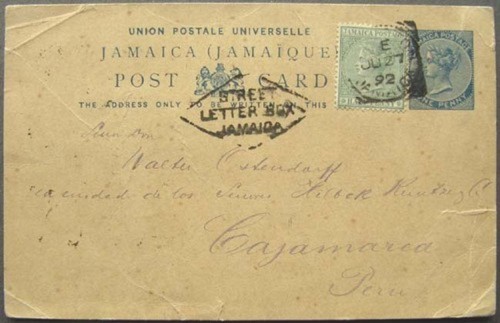 UNION POSTALE UNIVERSELLE
JAMAICA (JAMAÏQUE
POST CARD
THE ADDRESS ONLY TO BE WRITTEN ON THIS
JAMAICA POSTAGE
E
JU 27
92
JAMAICA POSTAGE
ONE PENNY
STREET
LETTER BOX
JAMAICA
Walter Ostendorff
cuidado de los Señores Hilbck Kuntze y C
Cajamarca
Peru